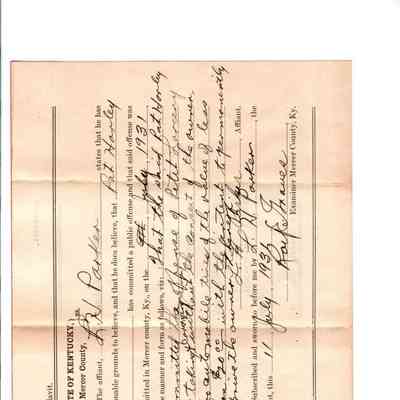 TE OF KENTUCKY,
Mercer County,
The affiant, R H Parker states that he has
onable grounds to believe, and that he does believe, that Pat Horley
has committed a public offense and that said offense was
mitted in Mercer county, Ky., on the day July 1931
e manner and form as follows, viz: That the said Pat Horley
committed the offense of petit larceny
taking without the consent of the owner
automobile tires of the value of less
than $20.00 with the intent to permanently
the owner
Affiant.
Subscribed and sworn to before me by R H Parker, the
t, this 11 July 1932
Examiner Mercer County, Ky.
davit.